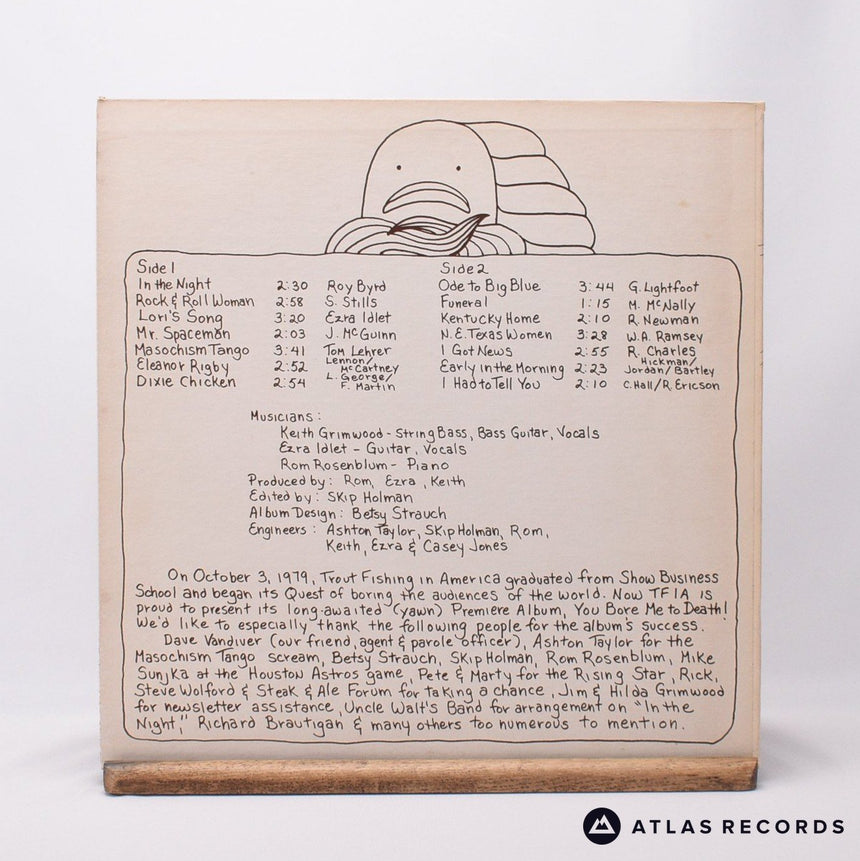 Side 1
In the Night 2:30 Roy Byrd
Rock & Roll Woman 2:58 S. Stills
Lori's Song 3:20 Ezra Idlet
Mr. Spaceman 2:03 J. McGuinn
Masochism Tango 3:41 Tom Lehrer
Eleanor Rigby 2:52 Lennon/McCartney
Dixie Chicken 2:54 L. George/F. Martin
Side 2
Ode to Big Blue 3:44 G. Lightfoot
Funeral 1:15 M. McNally
Kentucky Home 2:10 R. Newman
N.E. Texas Women 3:28 W.A. Ramsey
I Got News 2:55 R. Charles
Early in the Morning 2:23 Hickman/Jordan/Bartley
I Had to Tell You 2:10 C. Hall/R. Ericson
Musicians:
Keith Grimwood - String Bass, Bass Guitar, Vocals
Ezra Idlet - Guitar, Vocals
Rom Rosenblum - Piano
Produced by: Rom, Ezra, Keith
Edited by: Skip Holman
Album Design: Betsy Strauch
Engineers: Ashton Taylor, Skip Holman, Rom,
Keith, Ezra & Casey Jones
On October 3, 1979, Trout Fishing in America graduated from Show Business
School and began its Quest of boring the audiences of the world. Now TFIA is
proud to present its long-awaited (yawn) Premiere Album, You Bore Me to Death!
We'd like to especially thank the following people for the album's success.
Dave Vandiver (our friend, agent & parole officer), Ashton Taylor for the
Masochism Tango scream, Betsy Strauch, Skip Holman, Rom Rosenblum, Mike
Sunjka at the Houston Astros game, Pete & Marty for the Rising Star, Rick,
Steve Wolford & Steak & Ale Forum for taking a chance, Jim & Hilda Grimwood
for newsletter assistance, Uncle Walt's Band for arrangement on "In the
Night," Richard Brautigan & many others too numerous to mention.
ATLAS RECORDS